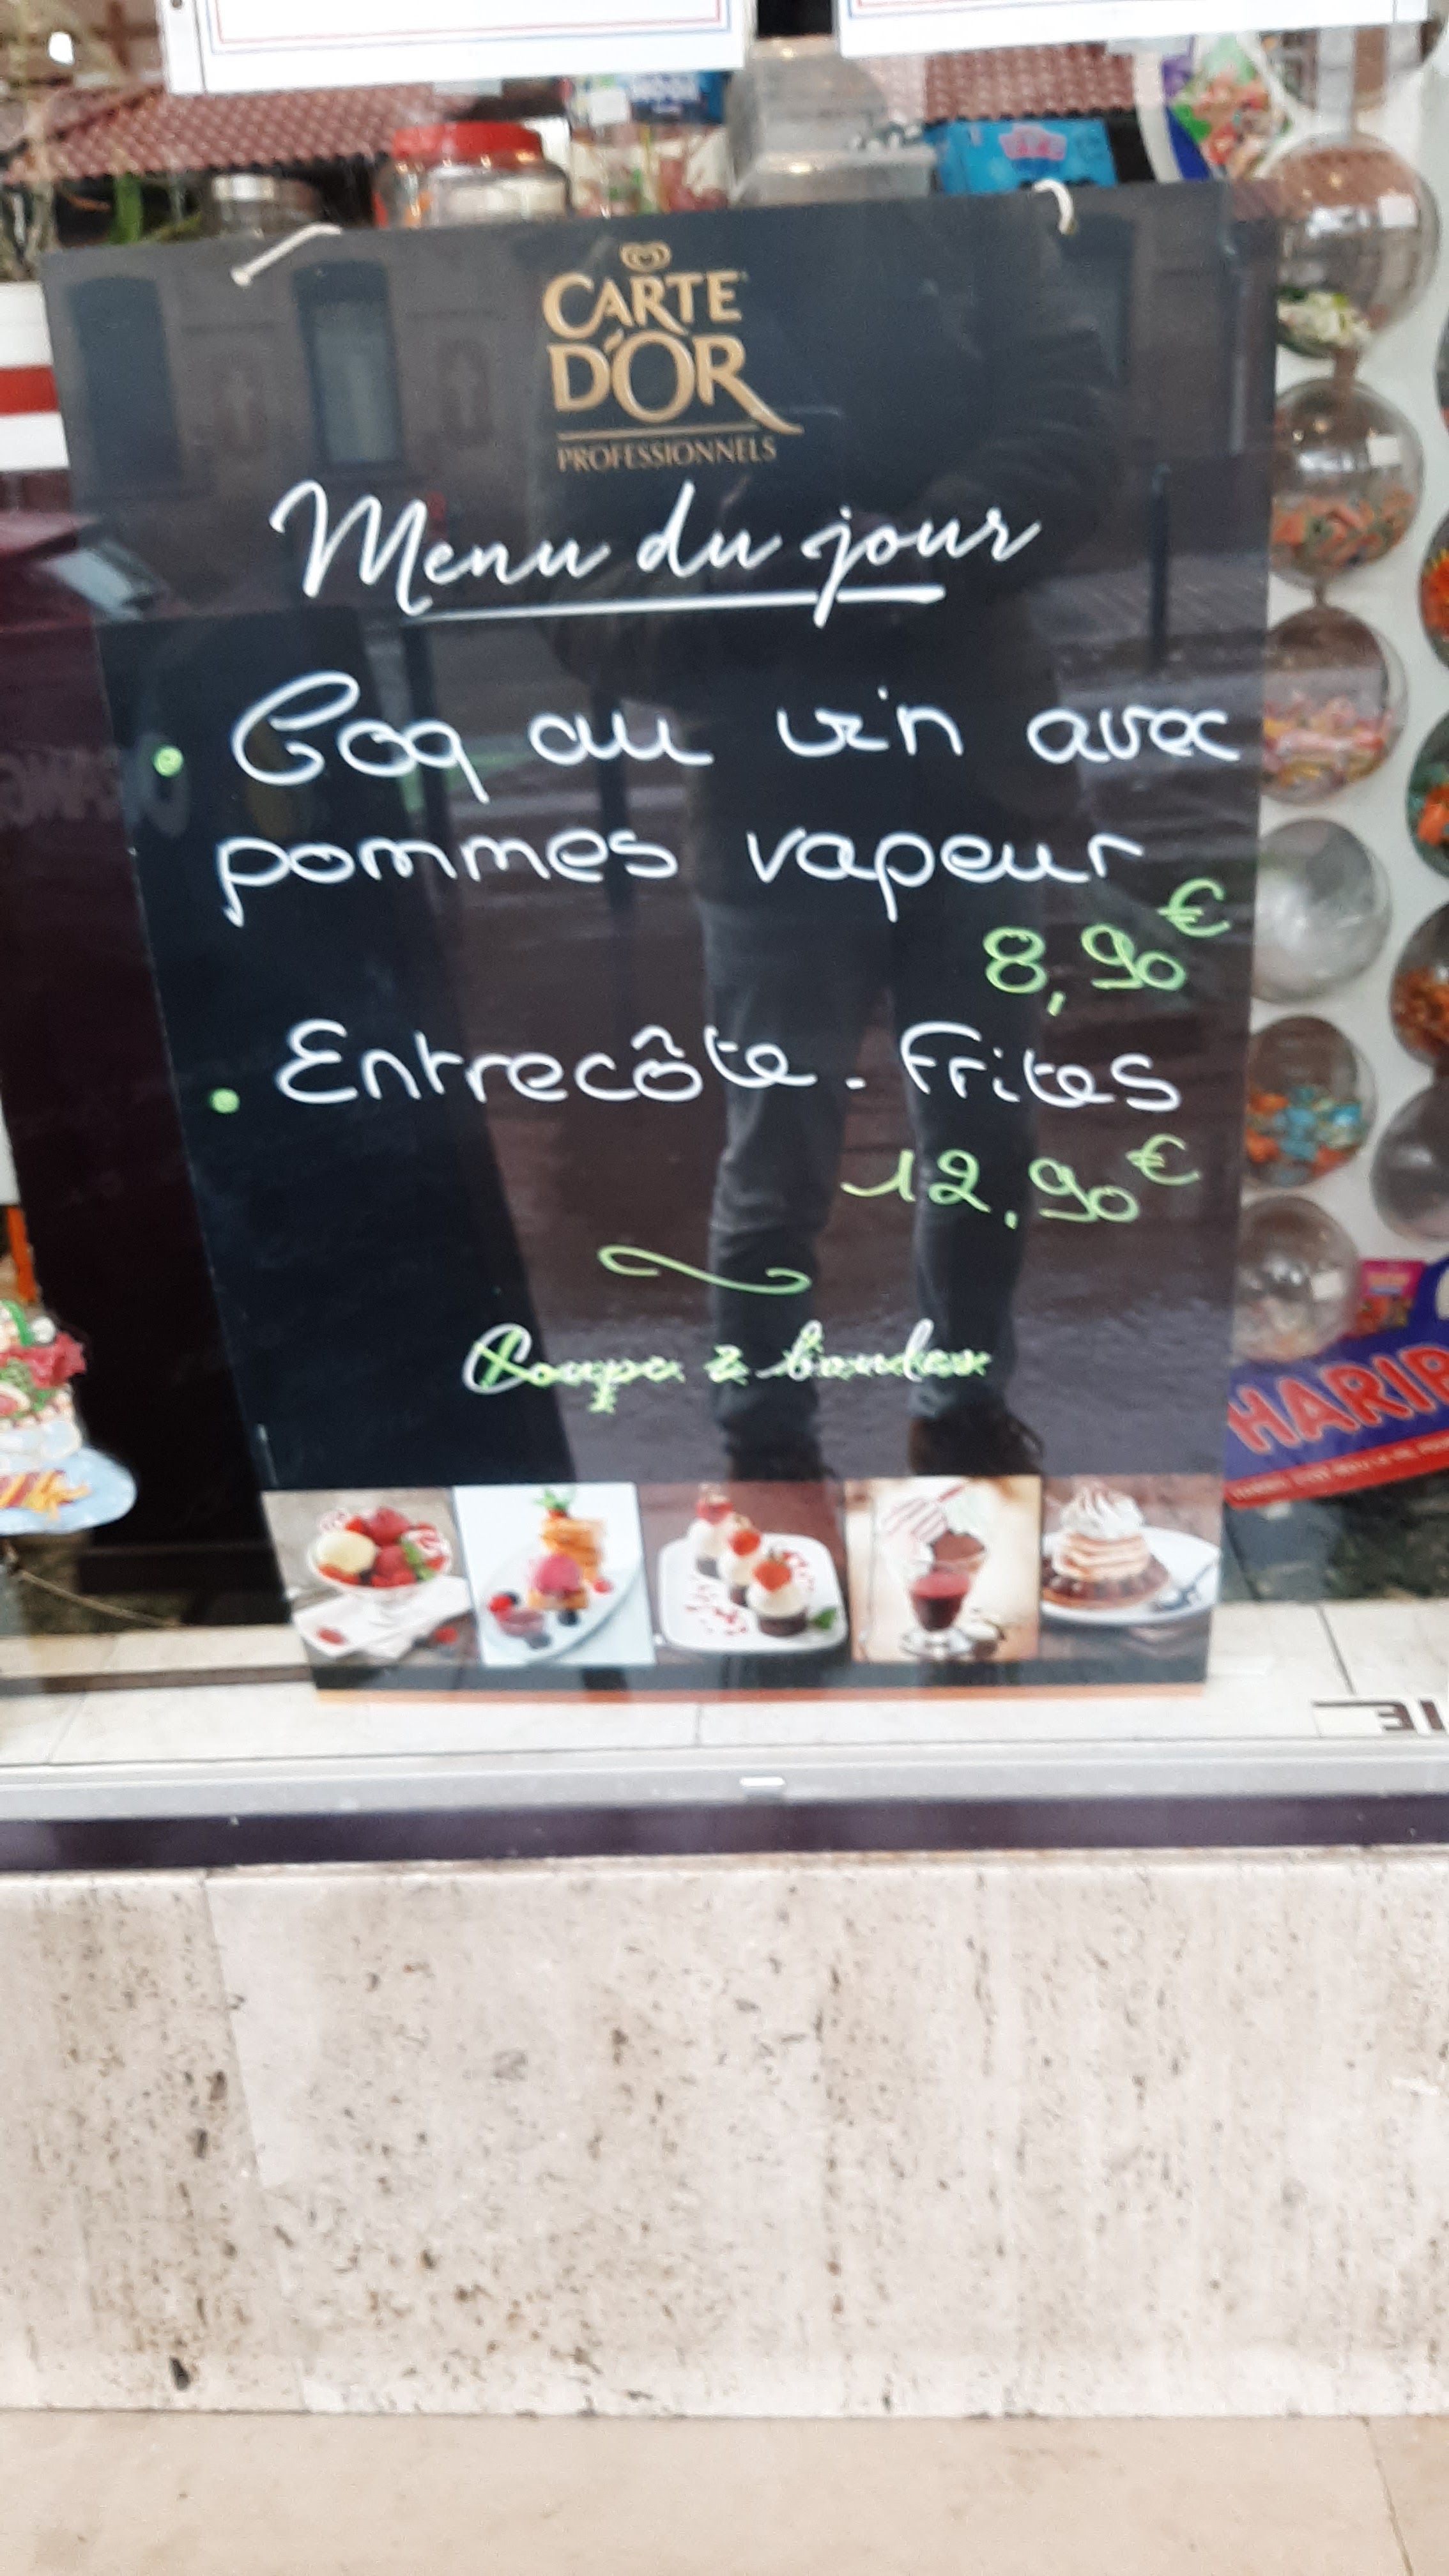 CARTE
D'OR
PROFESSIONNELS
Menu du jour
• Coq au vin avec
pommes vapeur
8,90€
• Entrecôte - Frites
12,90€
Coupe 2 boules
HARIB